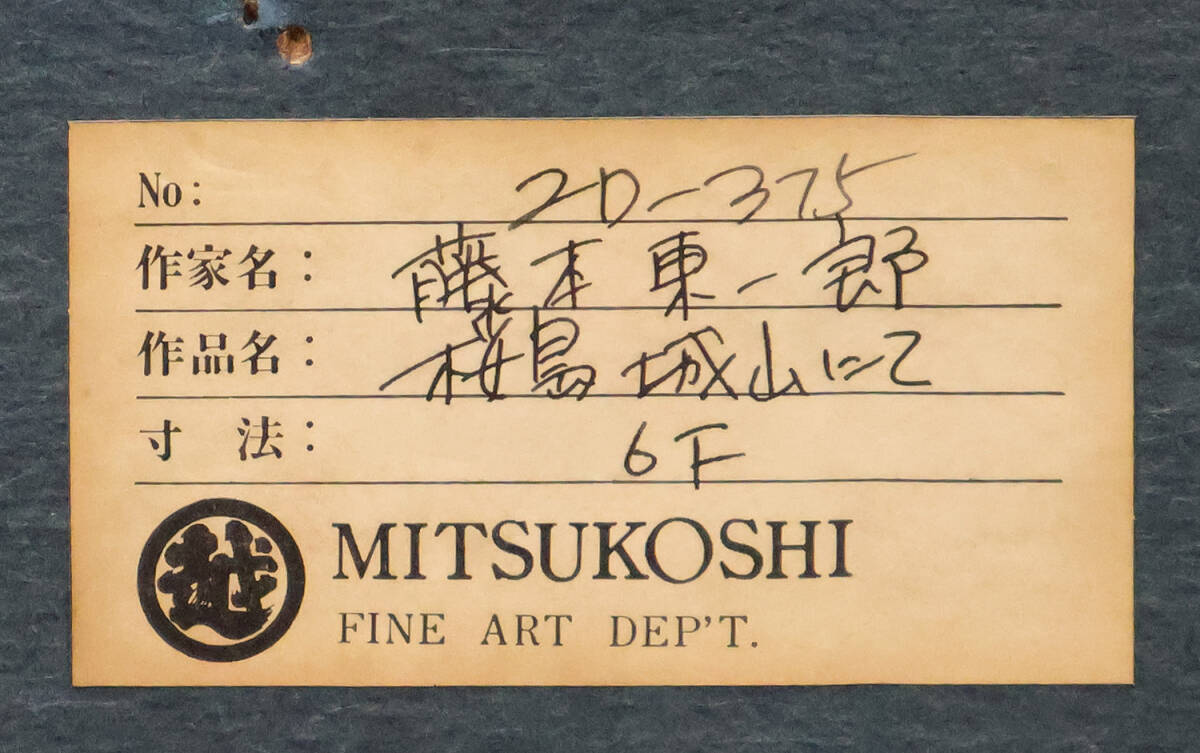 No: 2D-375
作家名: 藤本東一郎
作品名: 桜島 城山にて
寸 法: 6F
越
MITSUKOSHI
FINE ART DEP'T.